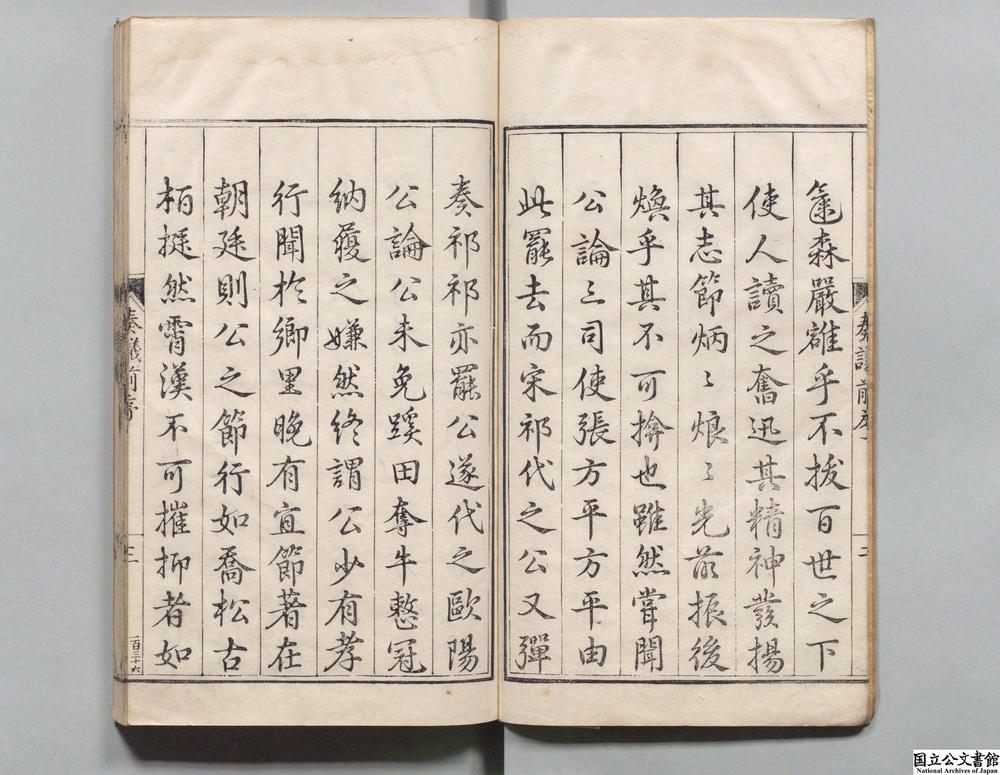 森嚴確乎不拔百世之下
使人讀之奮迅其精神發揚
其志節炳〻烺〻光前振後
煥乎其不可揜也雖然嘗聞
公論三司使張方平方平由
此罷去而宋祁代之公又彈
奏議前序
二
奏祁祁亦罷公遂代之歐陽
公論公未免蹊田奪牛整冠
納履之嫌然終謂公少有孝
行聞於鄉里晚有宜節著在
朝廷則公之節行如喬松古
栢挺然霄漢不可摧抑者如
奏議前序
三
一百三十六
国立公文書館
National Archives of Japan